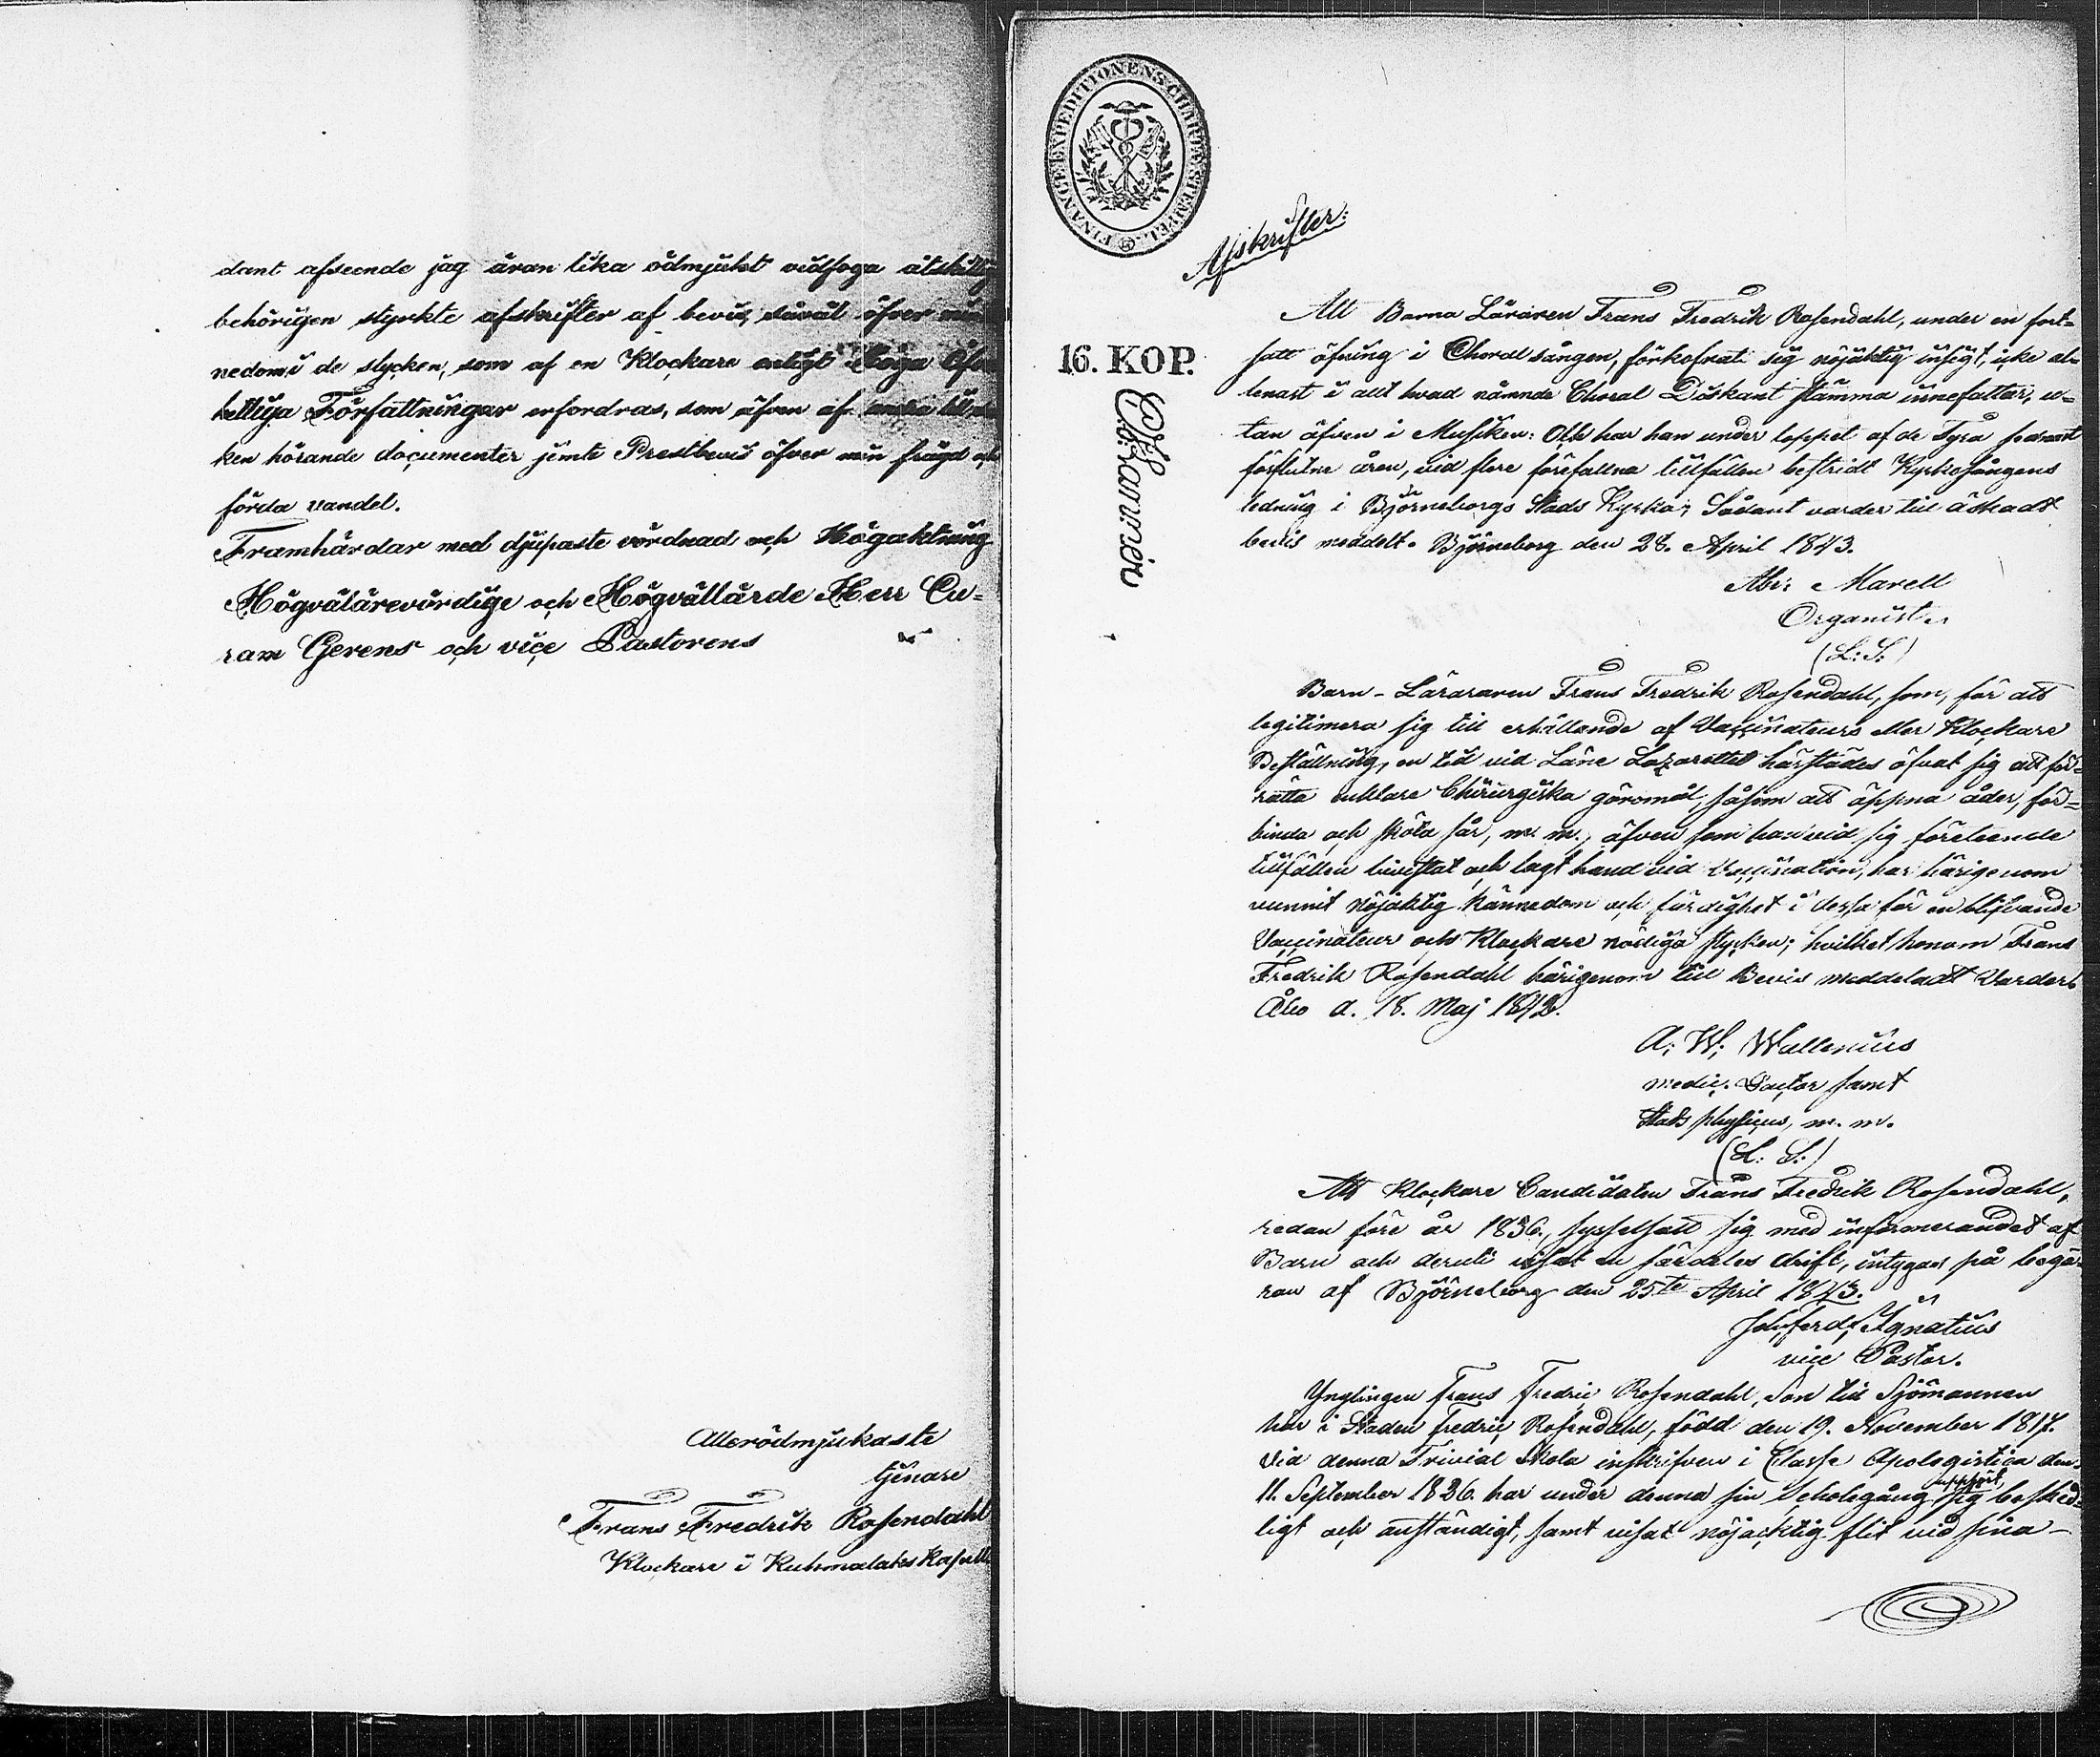 dant afseende jag äran lika ödmjukt vidfoga åtskillig
behörigen styrkte afskrifter af bevis, såväl öfver min
nedom i de stycken, som af en Klockare enligt Höga Öfver
hetliga Författningar erfordras, som äfven af andra till
ken hörande documenter jemte Prestbevis öfver min frägd och
förda vandel.
Framhärdar med djupaste vördnad och Högaktning
Högvälärevördige och Högvällärde Herr Cu=
ram Gerens och vice Pastorens
Allerödmjukaste
tjenare
Frans Fredrik Rosendahl
Klockare i Kuhmalaks Kapell
FINANCE EXPEDITIONENS CHARTÆ STEMPEL
Afskrifter:
16. KOP.
Att Barna Läraren Frans Fredrik Rosendahl, under en fort=
satt öfning i Choral sången, förkofrat sig nöjaktig insigt, icke al=
lenast i allt hvad nämnde Choral Diskant stämma innefattar, u=
tan äfven i Musiken: Och har han under loppet af de Fyra sednast
förflutne åren, vid flere förefallna tillfällen bestridt Kyrkosångens
ledning i Björneborgs Stads Kyrka; Sådant varder till äskadt
bevis meddelt. Björneborg den 28. April 1843.
Abr: Marell
Organist.
(L:S:)
Barn-Läraren Frans Fredrik Rosendahl, som, för att
legitimera sig till erhållande af Vaccinateurs eller Klockare
Beställning, en tid vid Läns Lazarettet härstädes öfvat sig att för=
rätta enklare Chirurgiska göromål, såsom att öppna åder, för=
binda och sköta sår, m. m., äfven som han vid sig företeende
tillfällen bivistat och lagt hand vid Vaccination, har härigenom
vunnit nöjaktig kännedom och färdighet i dessa för en blifvande
Vaccinateur och Klockare nödiga stycken; hvilket honom Frans
Fredrik Rosendahl härigenom till Bevis meddeladt Varder.
Åbo d. 18. Maj 1842.
A: W: Wallenius
medic. Doctor samt
Stads physicus, m. m.
(L: S:)
Att Klockare Candidaten Frans Fredrik Rosendahl,
redan före år 1836, sysselsatt sig med informerandet af
Barn och deruti visat en särdeles drift, intygas på begä=
ran af Björneborg den 25te April 1843.
Joh: Ferd: Ignatius
vice Pastor.
Ynglingen Frans Fredric Rosendahl, Son till Sjömannen
här i Staden Fredric Rosendahl, född den 19. November 1817.
Vid denna Trivial Skola inskrifven i Classe Apologistica den
11. September 1826. har under denna sin Skolegång uppfört sig besked=
ligt och anständigt, samt visat nöjacktig flit vid sina